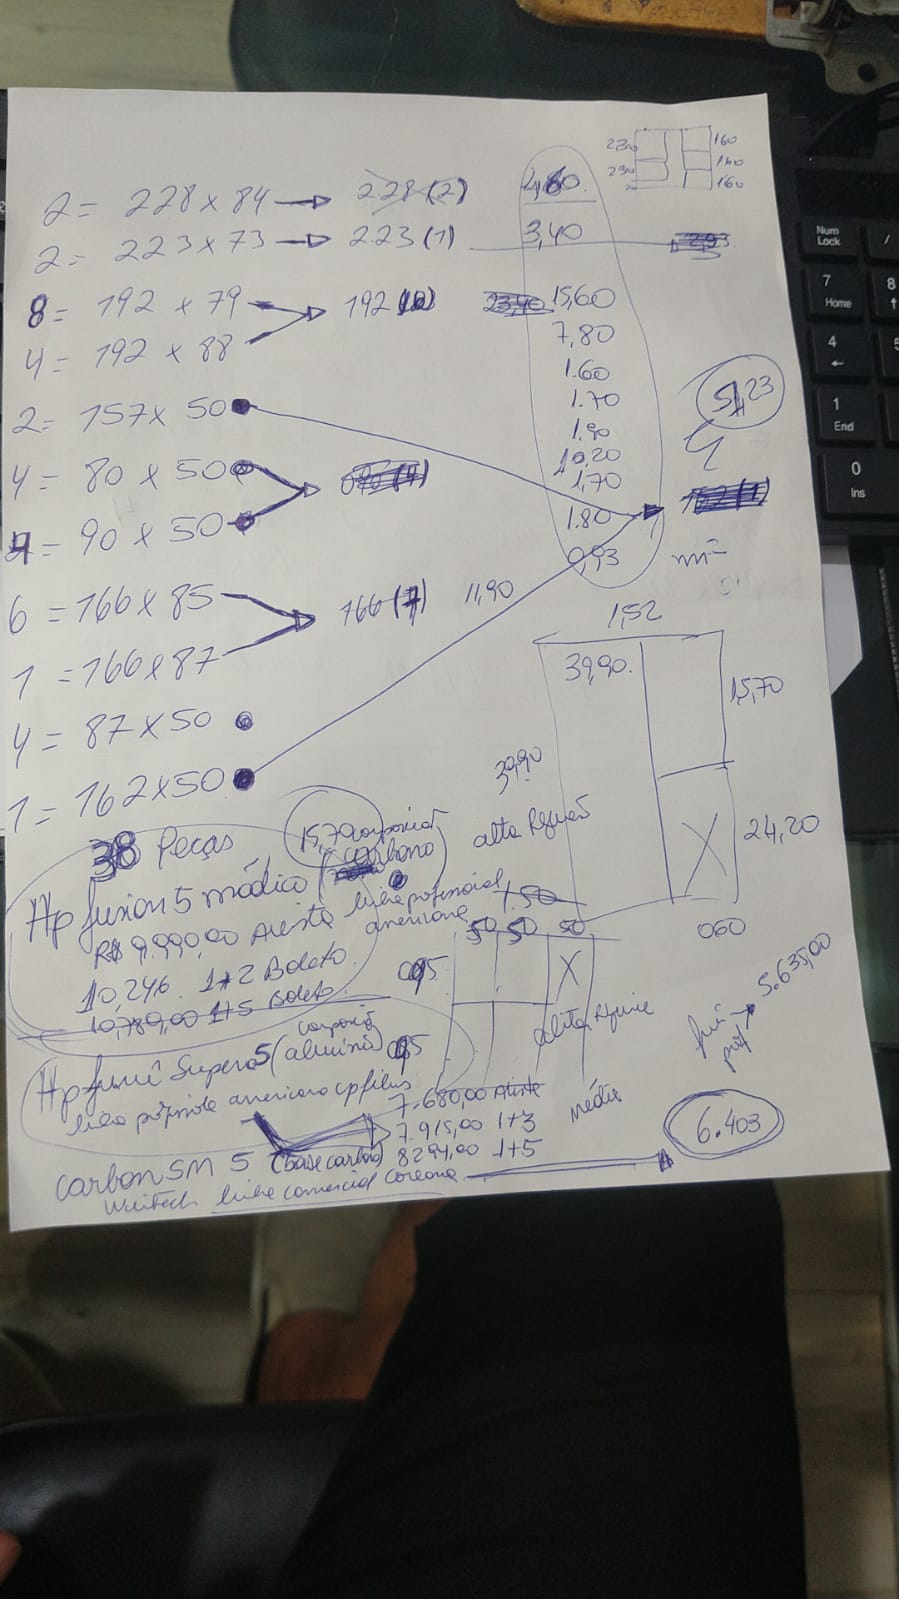 2= 228 x 84 → 228 (2) 4,60
2= 223 x 73 → 223 (1) 3,40
230 160
230 160
160
8= 192 x 79 192 15,60
4= 192 x 88 7,80
1.60
2= 157 x 50 1.70
1.90
4= 80 x 50 10,20
1,70
4= 90 x 50 1.80
0,93 m²
51,23
6 = 166 x 85 166 (7) 11,90
1 = 166 x 87
4 = 87 x 50
1 = 162 x 50
38 Peças
1,52
39,90. 15,70
39,90
24,20
060
15,70 composição
Hp fusion 5 médico (carbono) alta
R$ 9.990,00 Avista linha profissional
americana
10,246 1+2 Boleto.
10,789,00 1+5 Boleto.
1.50
50 50 50
095
095
Hp fumê Supero 5 (alumínio)
composição
7.680,00 Avista
7.915,00 1+3
8294,00 1+5
média
5.635,00
6.403
Carbon SM 5 (base carbono)
linha comercial Coreana